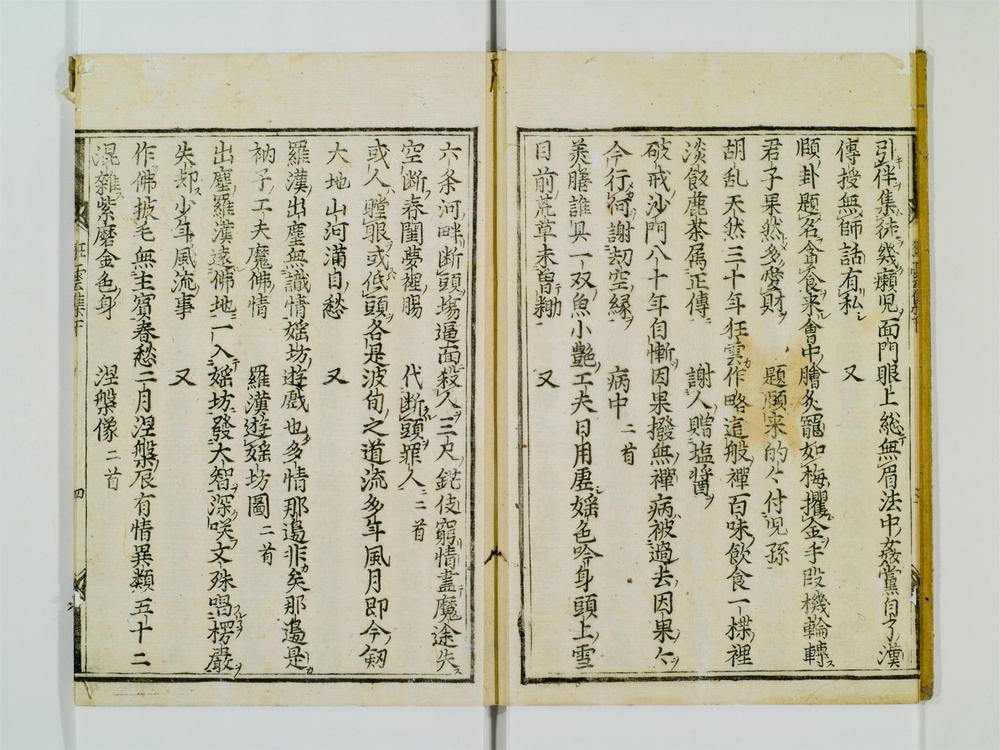 引伴集徒幾癩児面門眼上総無眉法中姦黨自了漢
傳授無師話有私　又
頤卦題名貪食来會中膾炙寵如梅攫金手段機輪轉
君子果然多愛財　題頤来的々付児孫
胡乱天然三十年狂雲作略這般禪百味飲食一楪裡
淡飯麁茶属正傳　謝人贈塩醤
破戒沙門八十年自慚因果撥無禪病被過去因果々
今行何謝劫空縁　病中二首
美膳誰具一双魚小艶工夫日用虚婬色吟身頭上雪
目前荒草未曽耡　又
六条河畔断頭場逼面殺人三尺鋩伎窮情盡魔途失
空断春閨夢裡腸　代断頭罪人二首
或人瞠眼或低頭各是波旬之道流多年風月即今劔
大地山河満目愁　又
羅漢出塵無識情婬坊遊戯也多情那邉非矣那邉是
衲子工夫魔佛情　羅漢遊婬坊圖二首
出塵羅漢遠佛地一入婬坊發大智深咲文殊唱楞嚴
失却少年風流事　又
作佛披毛無主賓春愁二月涅槃辰有情異類五十二
混雑紫磨金色身　涅槃像二首
狂雲集下
四